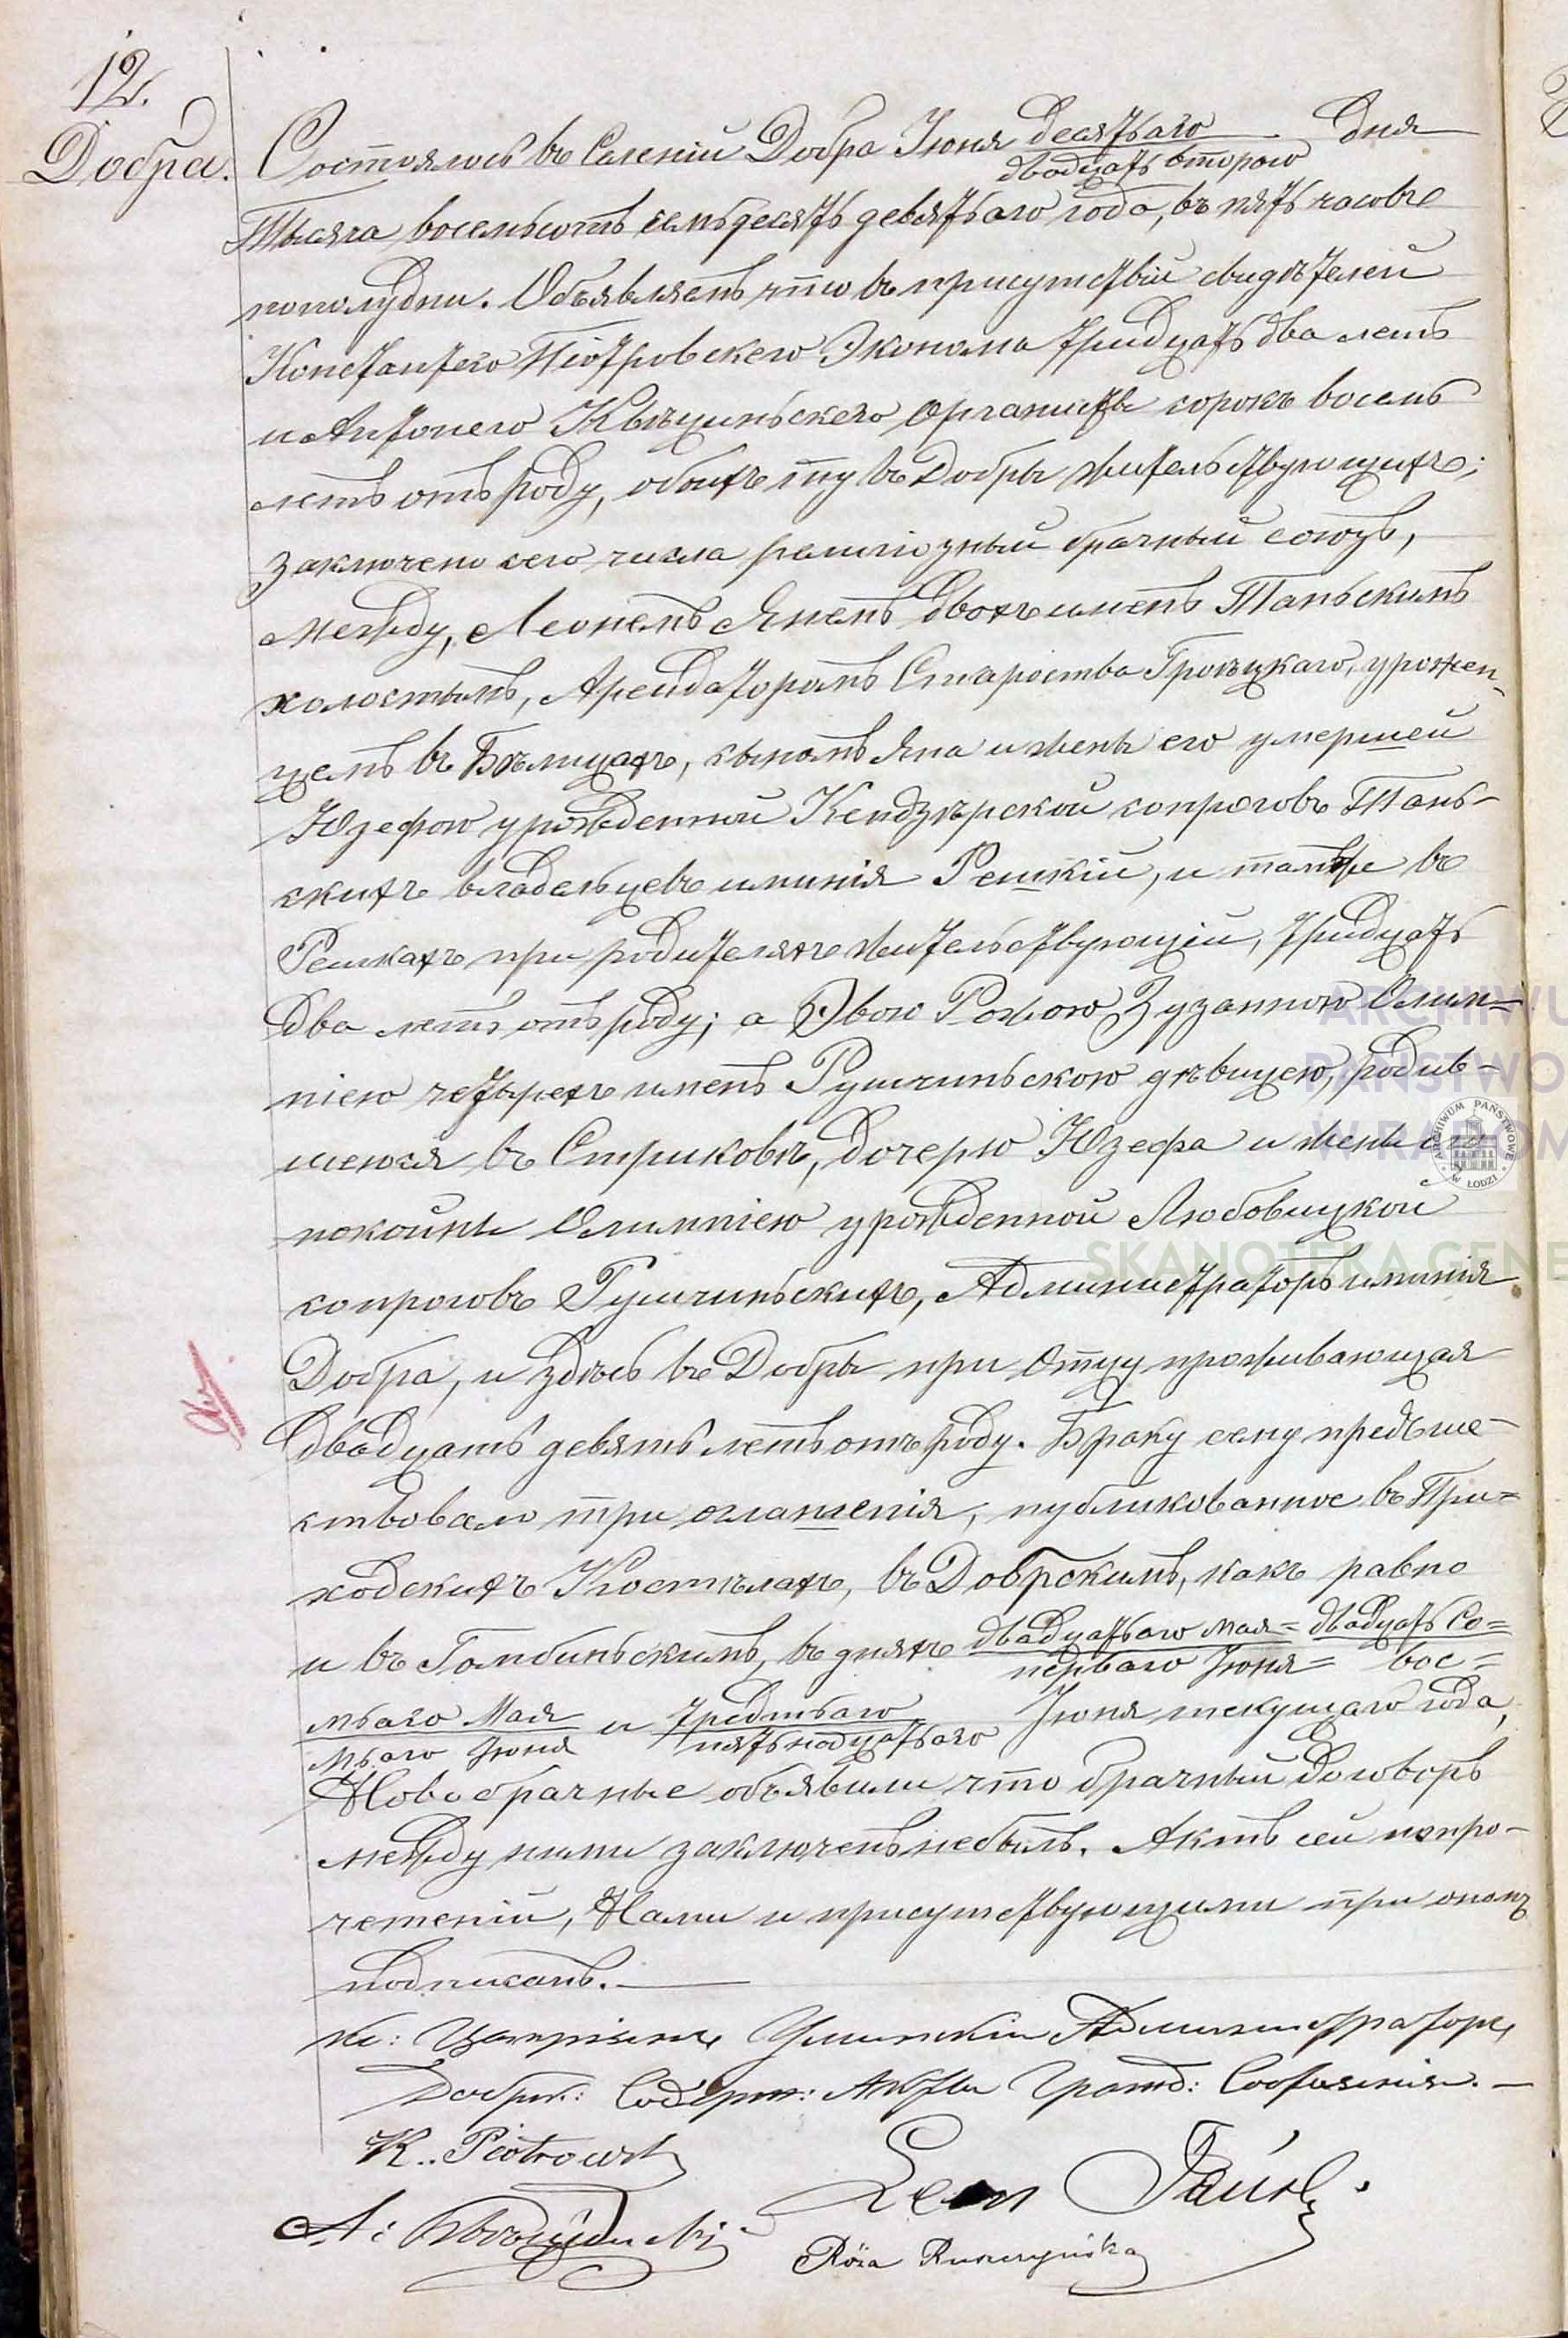 12.
Добра.
Состоялось въ Селеніи Добра Іюня десятаго / двадцать втораго дня
Тысяча восемьсотъ семьдесятъ девятаго года, въ пять часовъ
пополудни. Объявляемъ что въ присутствіи свидѣтелей
Константего Піотровскего Эконома тридцать два летъ
и Антонего Квѣциньскего Органисты сорокъ восемь
летъ отъ роду, обоихъ ту въ Добры жительствующихъ;
заключено сего числа религіозный брачный союзъ,
между, Леонемъ Янемъ двохъ именъ Таньскимъ
холостымъ, Арендаторомъ Староства Гроецкаго, урожен-
цемъ въ Бѣлицахъ, сыномъ Яна и жены его умершей
Юзефою урожденной Кендзѣрской супроговъ Тань-
скихъ владельцевъ иминія Решкій, и тамже въ
Решкахъ при родителяхъ жительствующій, тридцать
два летъ отъ роду; а Эвою Рожою Зузанною Олим-
піею четырехъ именъ Рушчиньскою дѣвицею, родив-
шеюся въ Стриковѣ, дочерю Юзефа и жены его
покойны Олимпіею урожденной Любовицкой
супроговъ Рушчиньскихъ, Администраторъ иминія
Добра, и здѣсь въ Добры при Отцу проживающая
двадцать девять летъ отъ роду. Браку сему предъше-
ствовало три оглашенія, публикованное въ При-
ходскихъ Костѣлахъ, въ Добрскимъ, какъ равно
и въ Гомбиньскимъ, въ дняхъ двадцатаго мая / перваго Іюня двадцать се- / вос-
мьаго Мая / мьаго Іюня и третьаго / пятьнадцатьаго Іюня текущаго года,
Новобрачные объявили что брачный договоръ
между ними заключенъ небылъ. Актъ сей попро-
четеніи, Нами и присутствующими при ономъ
подписанъ.
Администраторъ
Добрск: Содерж: Акты Гражд: Состоянія.
K. Piotrowski
Leon Tański
A: Kwieciński
Róża Ruszczyńska
ARCHIWU
PAŃSTWO
W RADOM
ARCHIWUM PAŃSTWOWE W ŁODZI
SKANOTEKA GENE